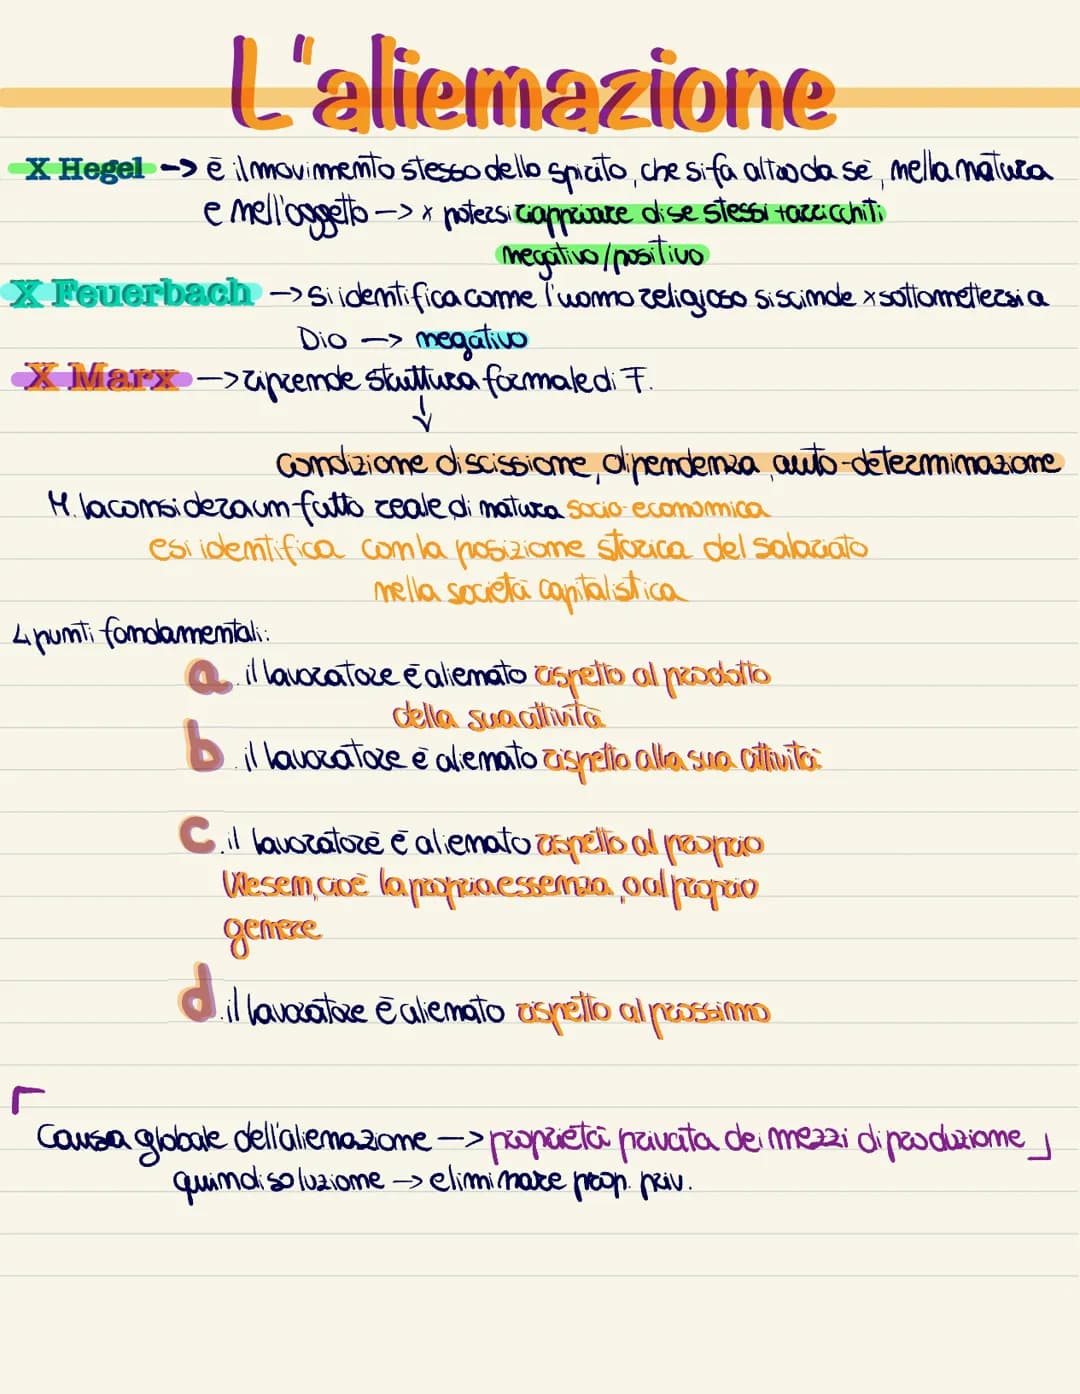 L'alienazione
X Hegel -> è il movimento stesso dello spirito, che si fa altro da sè, nella natura
e nell'oggetto -> x potersi riappriare di se stessi +arricchiti
negativo/positivo
X Feuerbach -> si identifica come l'uomo religioso si scinde x sottomettersi a
Dio -> negativo
X Marx -> riprende stuttura formale di F.
↓
condizione di scissione, dipendenza, auto-determinazione
M. la considera un fatto reale di natura socio-economica
e si identifica con la posizione storica del salariato
nella società capitalistica
4 punti fondamentali:
a. il lavoratore è alienato rispetto al prodotto
della sua attività
b. il lavoratore è alienato rispetto alla sua attività
c. il lavoratore è alienato rispetto al proprio
Wesen, cioè la propria essenza, o al proprio
genere
d. il lavoratore è alienato rispetto al prossimo
Causa globale dell'alienazione -> proprietà privata dei mezzi di produzione
quindi soluzione -> eliminare prop. priv.